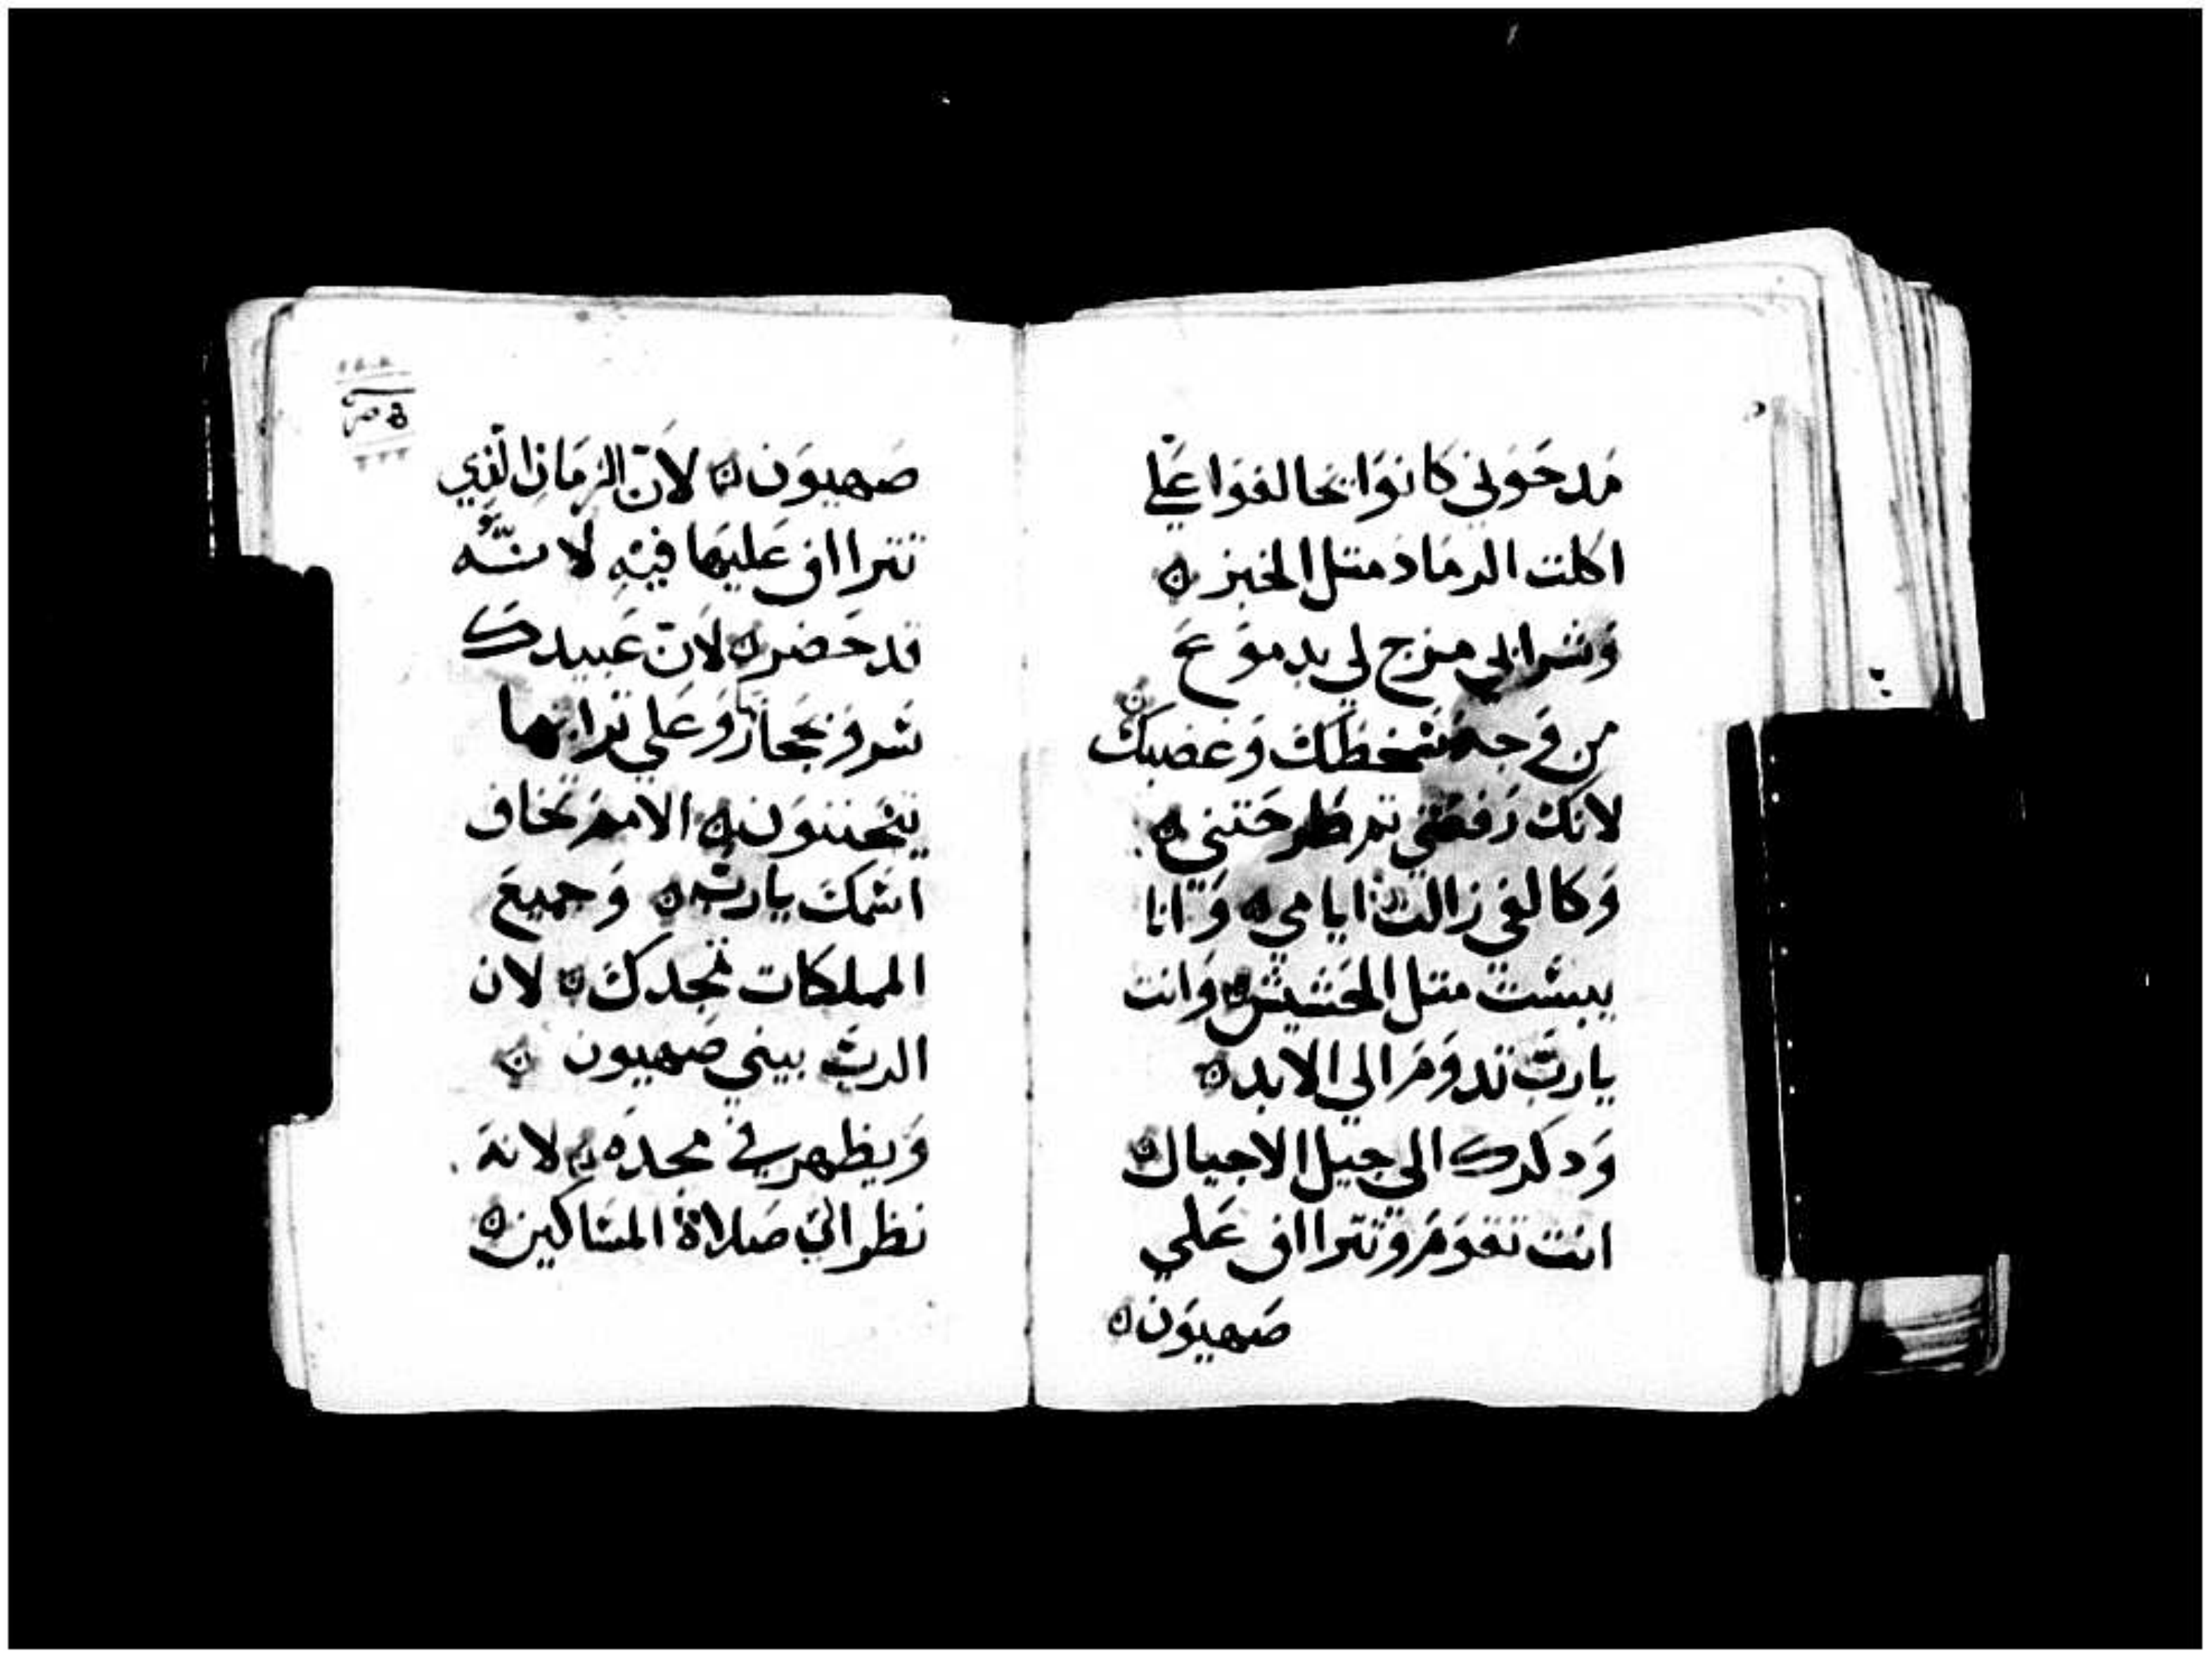 مَدحَوني كَانوَا يحَالفوَا عَليّ
اكلت الرمَاد متل الخبز ۞
وَشرابي مزج لي بدموَع
من وَجه سَخطك وَغضبك ۞
لانك رَفعتني تم طرحَتني ۞
وَكالفي زالت ايامي ۞ وَانا
يبسَت متل الحَشيش ۞ وَانت
يا ربّ تدوَم الي الابد ۞
وَدكرك الي جيل الاجيال ۞
انت تقوَم وَتتراف عَلي
صَهيوَن ۞
صَهيوَن ۞ لاَنّ الزمَان الذِي
تتراف عَليهَا فيْهِ لانّه
قد حَضر ۞ لاَنّ عَبيدك
سَروَ بحجارتها وَعَلي ترابها
يتحَننوَن ۞ الاممَ تخاف
اسَمكَ يا ربّ ۞ وَجميعَ
المملكات تمجدكَ ۞ لان
الربّ يبني صَهيون ۞
وَيظهر في مجدَه ۞ لانهَ
نظر الي صَلاة المسَاكين ۞